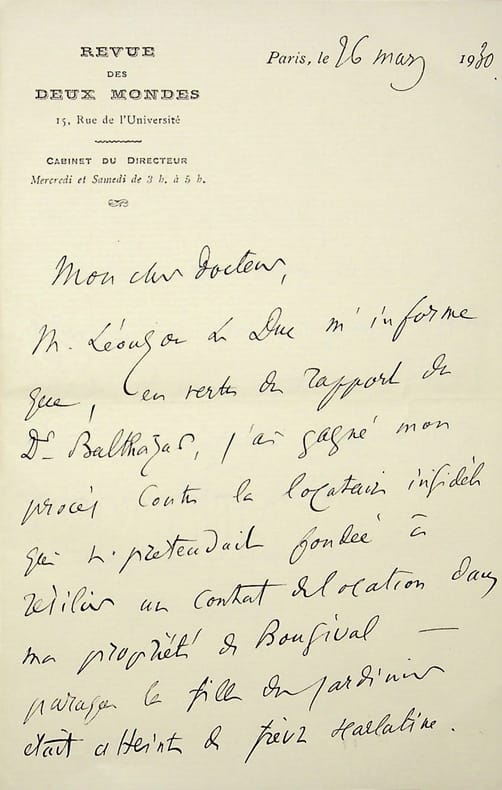 REVUE
DES
DEUX MONDES
15, Rue de l'Université
CABINET DU DIRECTEUR
Mercredi et Samedi de 3 h. à 5 h.
Paris, le 26 mars 1930.
Mon cher docteur,
M. Léouzon Le Duc m'informe
que, en vertu du rapport du
Dr Balthazar, j'ai gagné mon
procès contre la locataire infidèle
qui se prétendait fondée à
résilier un contrat de location dans
ma propriété de Bougival —
parce que la fille du jardinier
était atteinte de fièvre scarlatine.